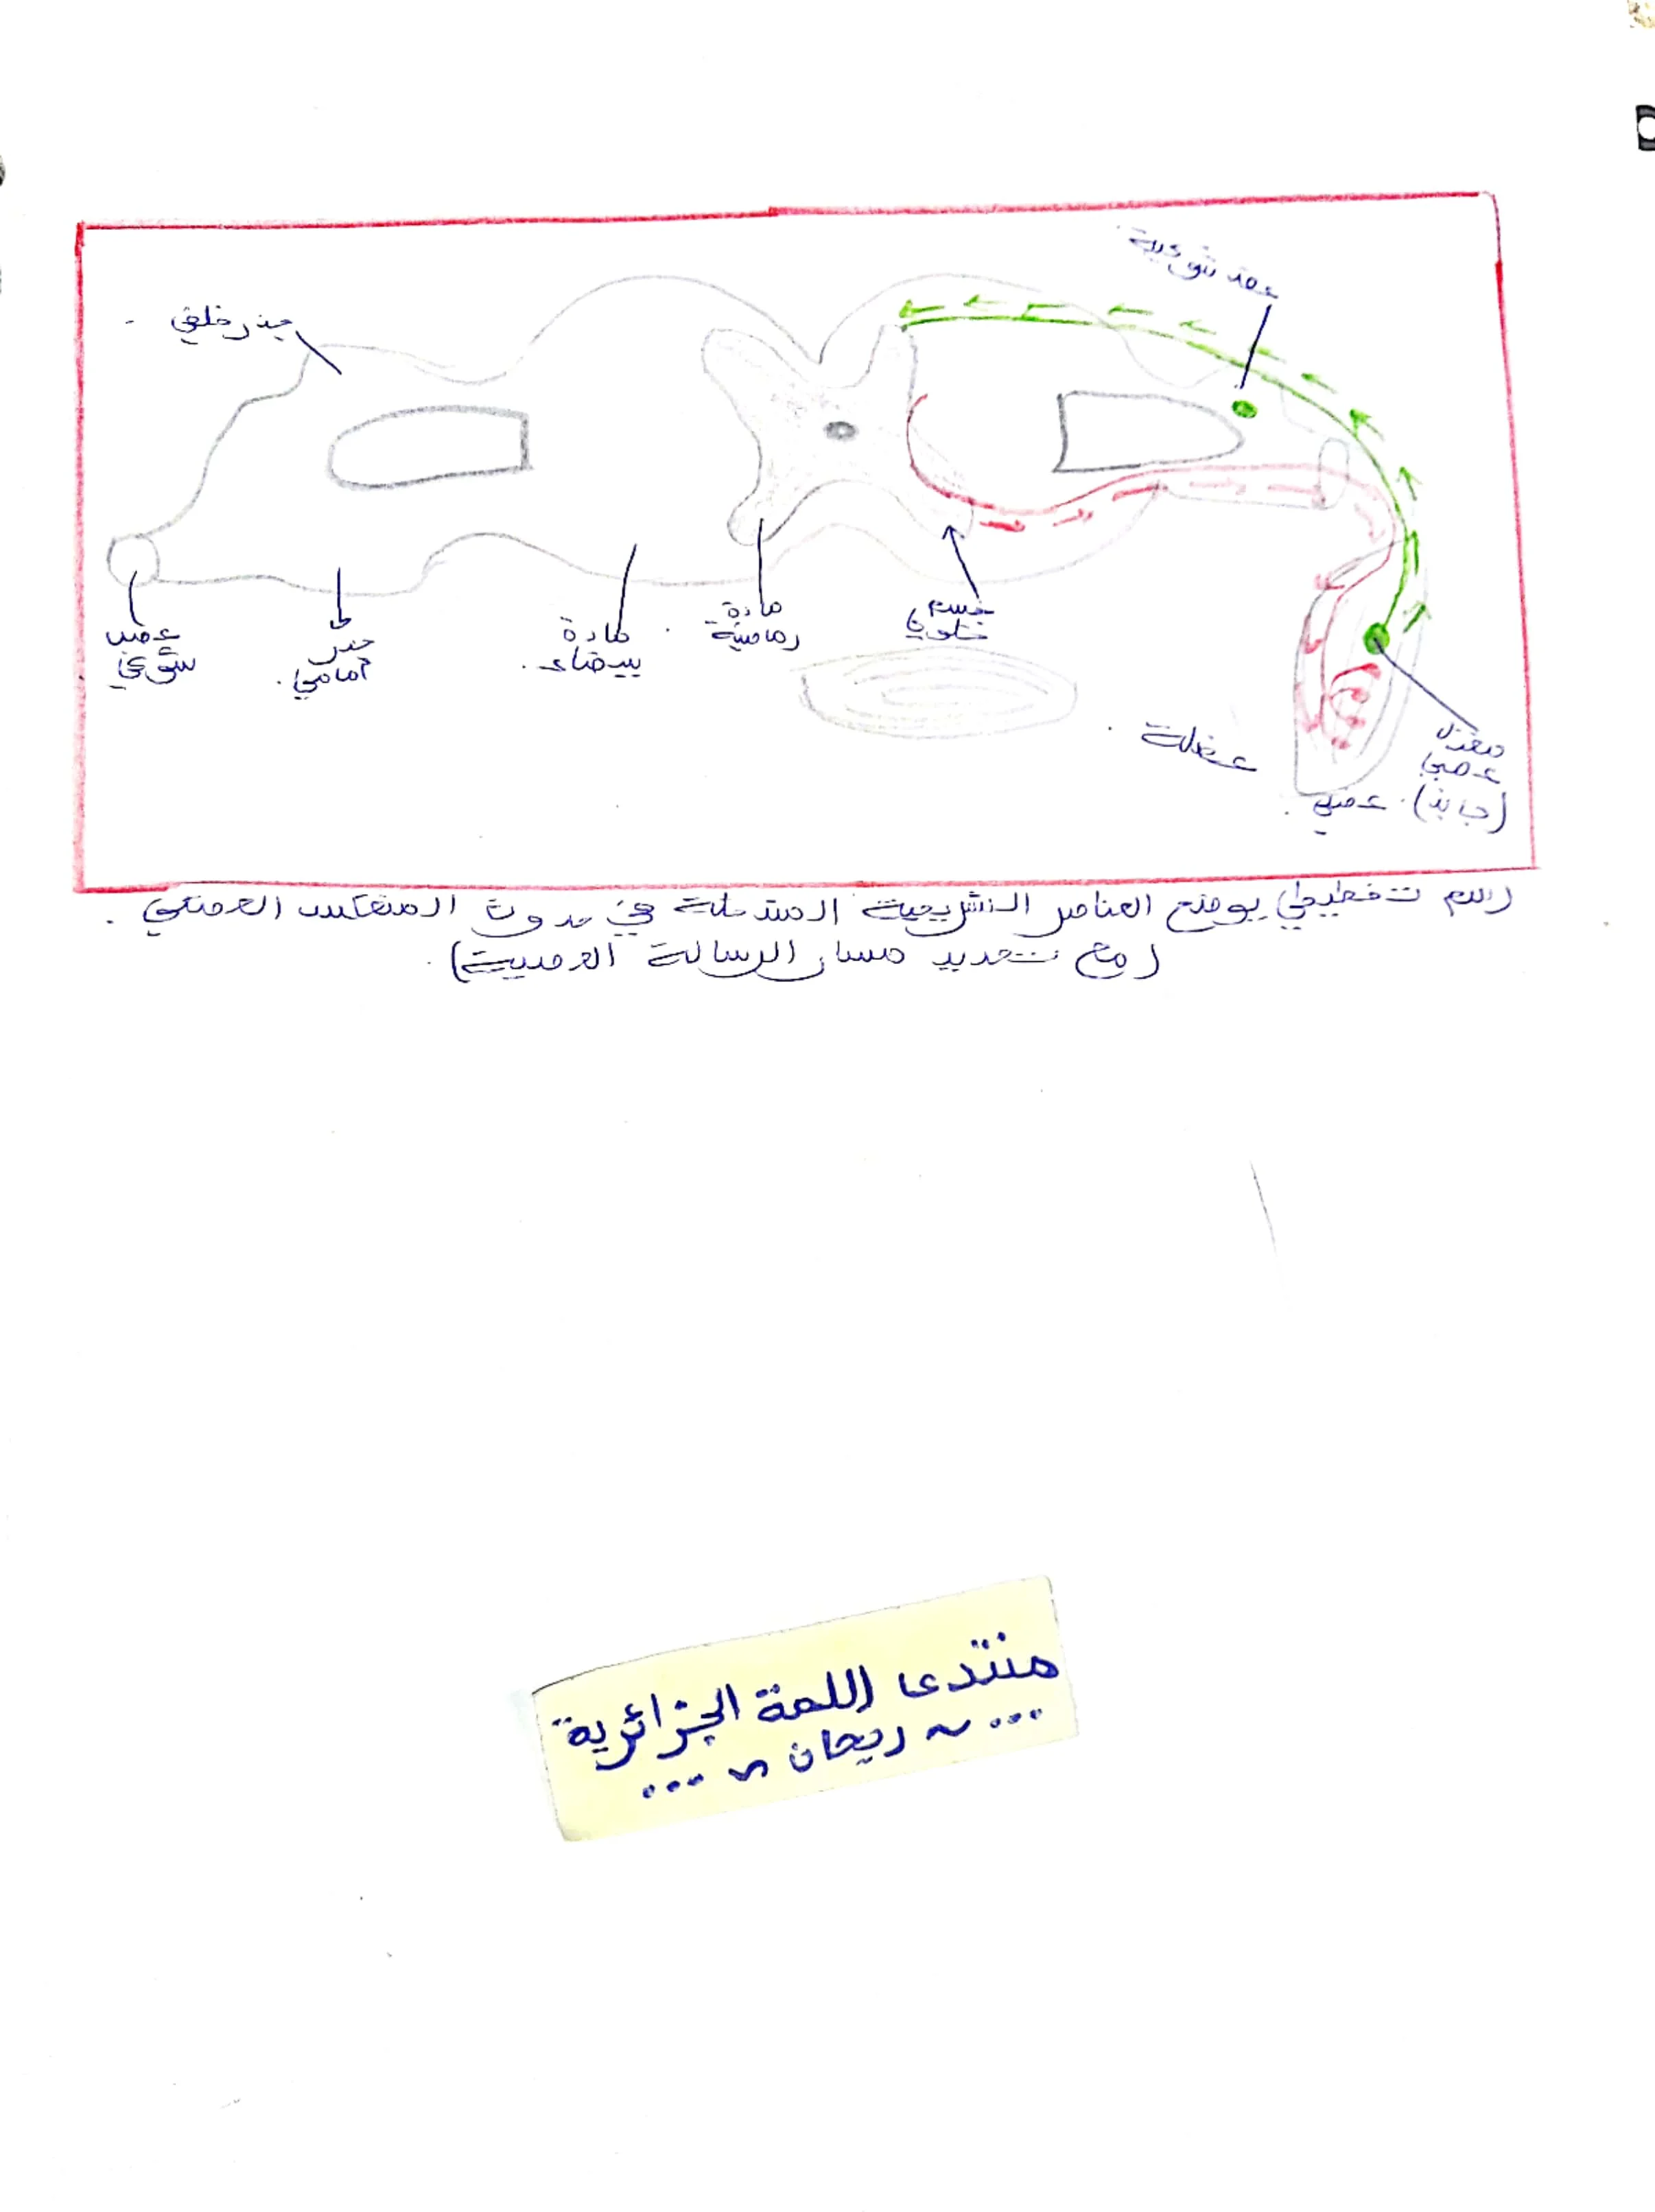 عقد شوكية
جذر خلفي
عصب
شوكي
جذر
أمامي.
مادة
بيضاء.
مادة
رمامية
جسم
خلوي
عضلة.
مغزل
عصبي
(جابذ). عضلي.
رسم تخطيطي يوضح العناصر التشريحية المتدخلة في حدوث المنعكس العضلي.
(مع تحديد مسار الرسالة العصبية).
منتدى اللمة الجزائرية
... ~ ريحان ~ ...